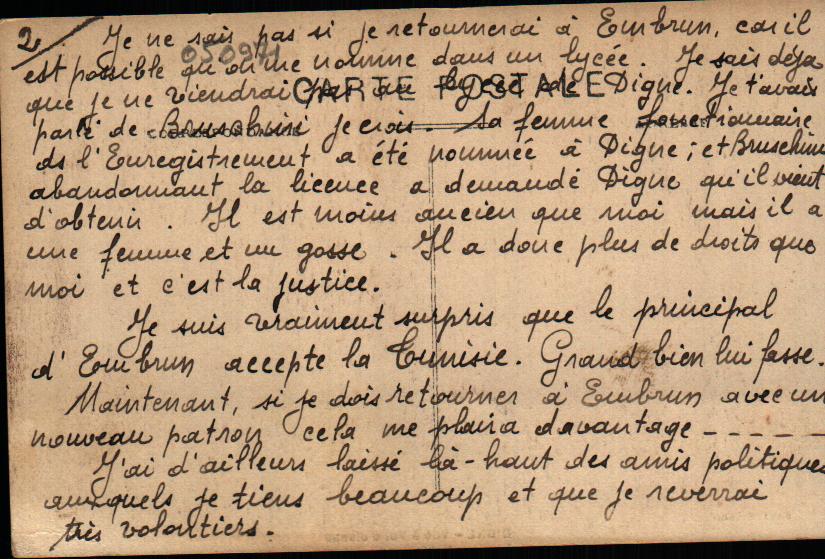 2/ Je ne sais pas si je retournerai à Embrun, car il
050971
est possible qu'on me nomme dans un lycée. Je sais déja
que je ne viendrai pas au lycée de Digne. Je t'avais
CARTE POSTALE
parlé de Bruschini je crois. Sa femme fonctionnaire
ds l'Enregistrement a été nommée à Digne ; et Bruschini
abandonnant la licence a demandé Digne qu'il vient
d'obtenir. Il est moins ancien que moi mais il a
une femme et un gosse. Il a donc plus de droits que
moi et c'est la justice.
Je suis vraiment surpris que le principal
d'Embrun accepte la Tunisie. Grand bien lui fasse.
Maintenant, si je dois retourner à Embrun avec un
nouveau patron cela me plaira davantage - - - - - -
J'ai d'ailleurs laissé là-haut des amis politiques
auxquels je tiens beaucoup et que je reverrai
très volontiers.